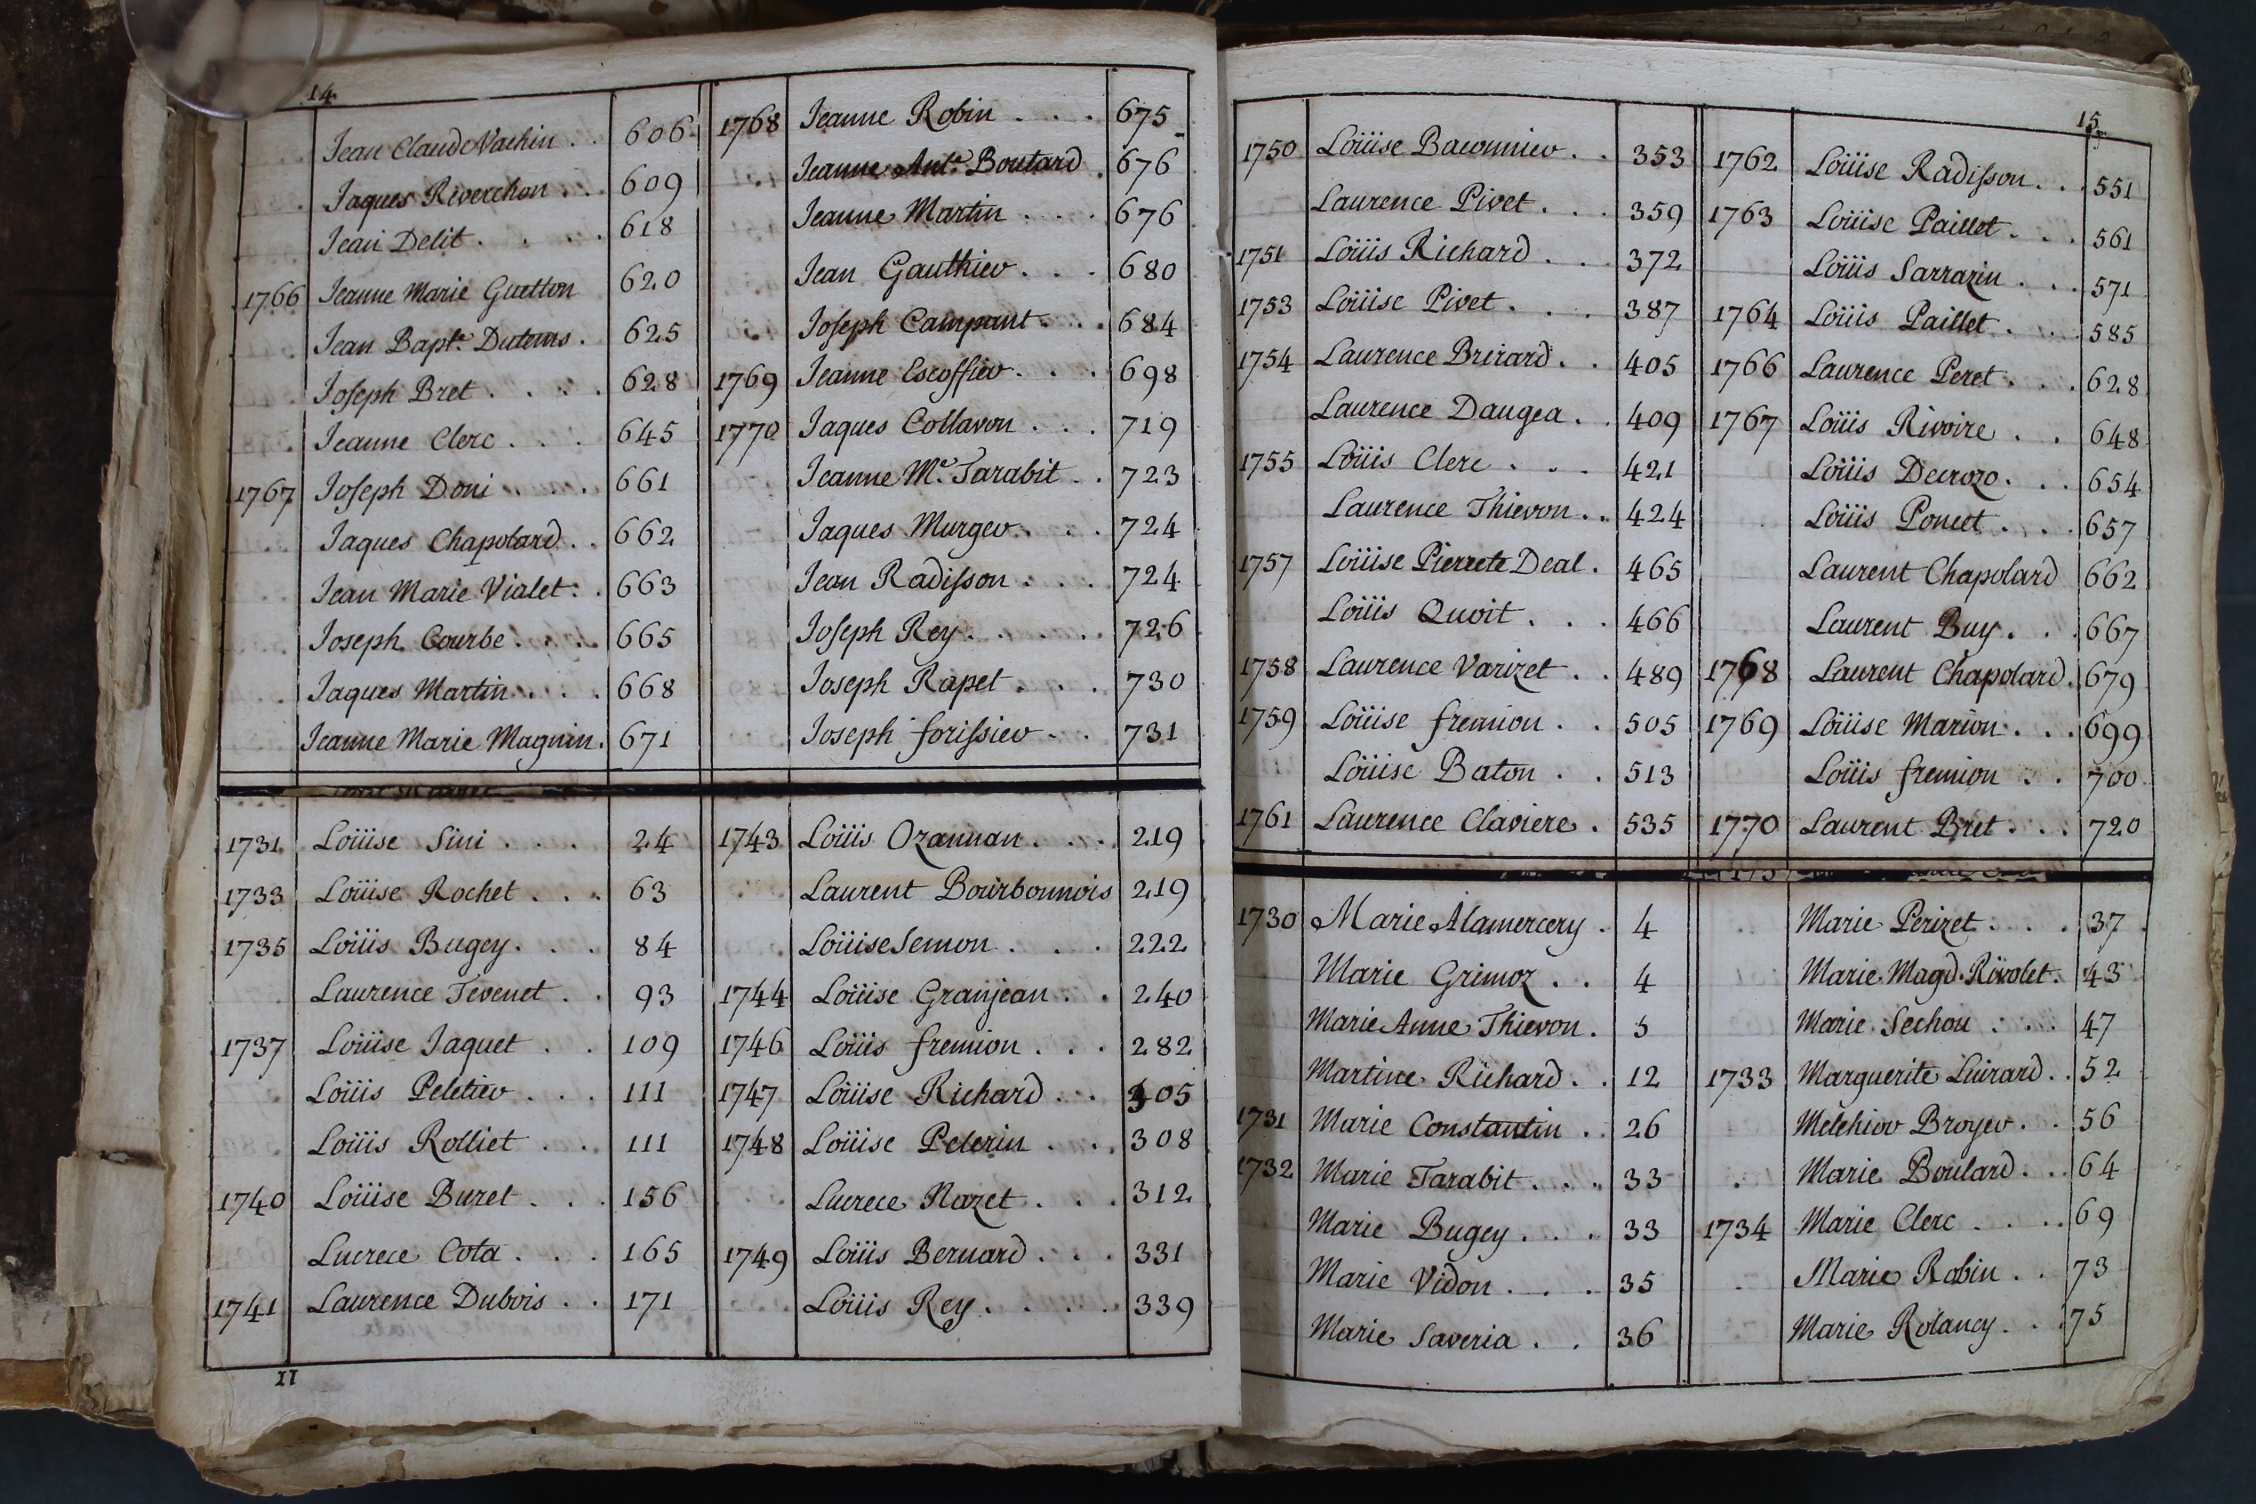 14
Jean Claude Vachin . . 606
Jaques Riverchon . . 609
Jean Delit . . . . 618
1766 Jeanne Marie Guetton 620
Jean Bapt.e Duterns . 625
Joseph Bret . . . . 628
Jeanne Clerc . . . 645
1767 Joseph Doni . . . . 661
Jaques Chapolard . . 662
Jean Marie Vialet . . 663
Joseph Courbe . . . . 665
Jaques Martin . . . . 668
Jeanne Marie Magnin . 671
1768 Jeanne Robin . . . 675
Jeanne Ant.e Boutard . 676
Jeanne Martin . . . 676
Jean Gauthier . . . 680
Joseph Campant . . . 684
1769 Jeanne Escoffier . . . 698
1770 Jaques Collavon . . . 719
Jeanne M.e Tarabit . . 723
Jaques Murger . . . 724
Jean Radisson . . . 724
Joseph Rey . . . . . 726
Joseph Rapet . . . 730
Joseph forissier . . 731
1731 Loüise Sini . . . 24
1733 Loüise Rochet . . . 63
1735 Loüis Bugey . . . 84
Laurence Tevenet . . 93
1737 Loüise Jaquet . . 109
Loüis Peletier . . . 111
Loüis Rolliet . . . 111
1740 Loüise Buret . . . 156
Lucrece Cota . . . 165
1741 Laurence Dubois . . 171
1743 Loüis Ozannan . . . 219
Laurent Bourbonnois 219
Loüise Semon . . . 222
1744 Loüise Granjean . . 240
1746 Loüis fremion . . . 282
1747 Loüise Richard . . . 305
1748 Loüise Pelerin . . . 308
Lucrece Nazet . . . 312
1749 Loüis Bernard . . . 331
Loüis Rey . . . . . 339
11
15
1750 Loüise Baconnier . . 353
Laurence Pivet . . . 359
1751 Loüis Richard . . . 372
1753 Loüise Pivet . . . . 387
1754 Laurence Brirard . . 405
Laurence Daugea . . 409
1755 Loüis Clerc . . . 421
Laurence Thievon . . 424
1757 Loüise Pierrete Deal . 465
Loüis Quoit . . . 466
1758 Laurence Varizet . . 489
1759 Loüise fremion . . 505
Loüise Baton . . 513
1761 Laurence Claviere . 535
1762 Loüise Radisson . . . 551
1763 Loüise Paillet . . . 561
Loüis Sarrazin . . . 571
1764 Loüis Paillet . . . 585
1766 Laurence Peret . . . 628
1767 Loüis Rivoire . . 648
Loüis Decrozo . . . 654
Loüis Poncet . . . 657
Laurent Chapolard 662
Laurent Buy . . . 667
1768 Laurent Chapolard . 679
1769 Loüise Marion . . . 699
Loüis fremion . . 700
1770 Laurent Bret . . . 720
1730 Marie Alamercery . 4
Marie Grimoz . . 4
Marie Anne Thievon . 5
Martine Richard . . 12
1731 Marie Constantin . . 26
1732 Marie Tarabit . . . 33
Marie Bugey . . . 33
Marie Vidon . . . 35
Marie Saveria . . 36
Marie Perizet . . . . 37
Marie Magd. Rivolet . 43
Marie Sechou . . . 47
1733 Marguerite Luirard . . 52
Melchior Broyer . . 56
Marie Boulard . . . 64
1734 Marie Clerc . . . . 69
Marie Robin . . 73
Marie Rolancy . . . 75